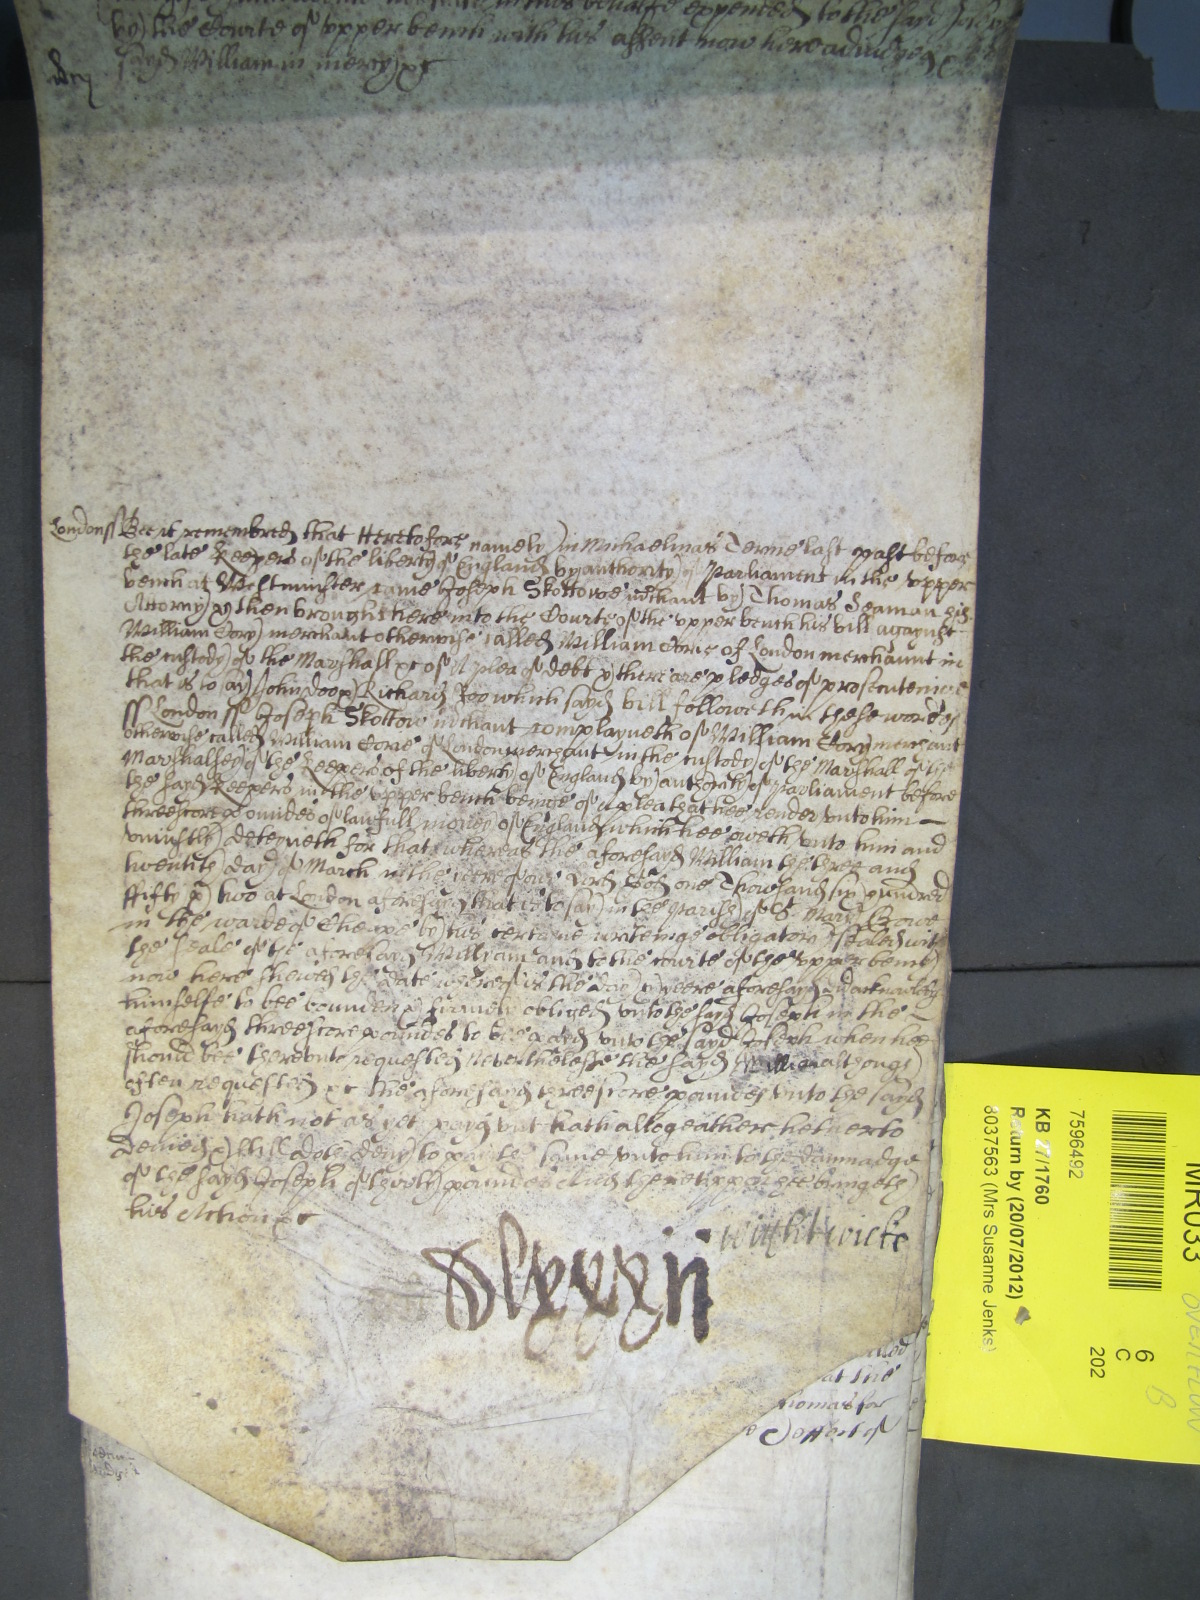 by the Courte of vpper bench with his assent now here adiudged
sayd William in mercy xc
London ss Bee it remembred that Heretofore namely in Michaelmas Terme last past before
the late Keepers of the liberty of England by authority of Parliament in the vpper
bench at Westminster came Joseph Skottowe mchant by Thomas Seaman his
Attorny & then brought here into the Courte of the vpper bench his bill against
William Cory merchant otherwise called William Corie of London merchaunt in
the custody of the Marshall xc of A plea of debt & there are pledges of prosecuteinge
that is to say John doo & Richard Roo which sayd bill followeth in these words
ss London ss Joseph Skottow mchant complayneth of William Cory merchant
otherwise called William Corie of London merchant in the custody of the Marshall of the
Marshalsey of the Keepers of the liberty of England by authority of Parliament before
the sayd Keepers in the vpper bench beinge of a plea that hee render vnto him
threescore poundes of lawfull money of England which hee oweth vnto him and
vniustly deteyneth for that whereas the aforesayd William the three and
twentith day of March in the yeere of our Lord God one Thowsand six hundred
ffifty & two at London aforesayd that is to say in the parish of St Mary Bowe
in the warde of Cheape by his certaine writeinge obligatory sealed with
the seale of the aforesayd William and to the courte of the vpper bench
now here shewed the date whereof is the day & yeere aforesayd did acknowledg
himselfe to bee bounden & firmely obliged vnto the sayd Joseph in the
aforesayd threescore poundes to bee payd vnto the sayd Joseph when hee
should bee therevnto requested Neverthelesse the sayd William although
often requested xc the aforesayd threescore poundes vnto the sayd
Joseph hath not as yet payd but hath altogeather hetherto
denied & still doth deny to pay the same vnto him to the dammadge
of the sayd Joseph of twenty poundes And therevppon hee bringeth
his Action xc
wightwicke
at the
Thomas for
MR033
OVERFLOW
B
6
C
202
7596492
KB 27/1760
Return by (20/07/2012)
8037563 (Mrs Susanne Jenks)